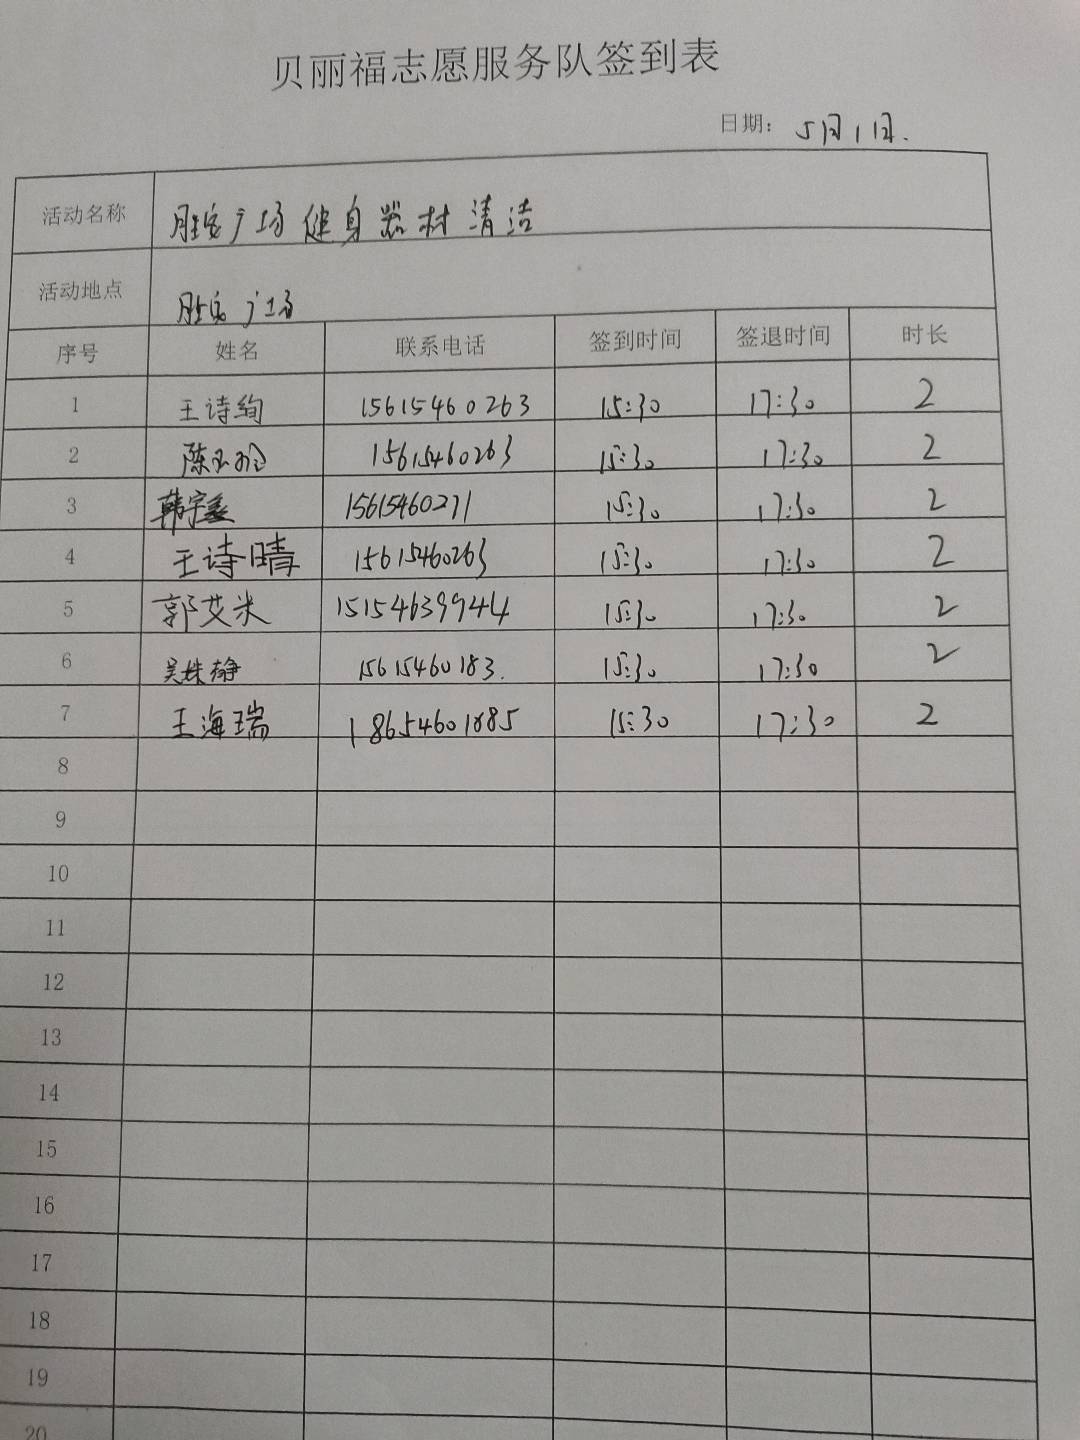 贝丽福志愿服务队签到表
日期: 5月1日.
活动名称 胜宏广场健身器材清洁
活动地点 胜宏广场
序号 姓名 联系电话 签到时间 签退时间 时长
1 王诗绚 15615460263 15:30 17:30 2
2 陈 15615460263 15:30 17:30 2
3 韩宇鑫 15615460271 15:30 17:30 2
4 王诗晴 15615460263 15:30 17:30 2
5 郭艾米 15154639944 15:30 17:30 2
6 吴姝静 15615460183. 15:30 17:30 2
7 王海瑞 18654601885 15:30 17:30 2
8
9
10
11
12
13
14
15
16
17
18
19
20